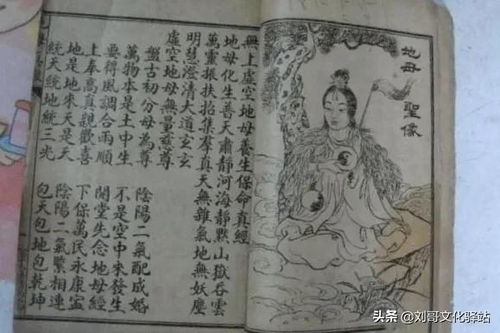 地母 聖像
無上虛空地母養生保命真經
地母化生普天肅靜河海靜默山嶽吞雲
萬靈振扶招集羣真天無雜氣地無妖塵
明慧澄清大道玄玄
虛空地母無量慈尊
盤古初分母為尊 陰陽二氣配成婚
萬物本是土中生 不是空中來發生
要得風調合雨順 開堂先念地母經
上奉高真親歡喜 下保萬民永康寧
地是地來天是天 陰陽二氣緊相連
統天統地統三光 包天包地包乾坤
头条 @刘哥文化驿站